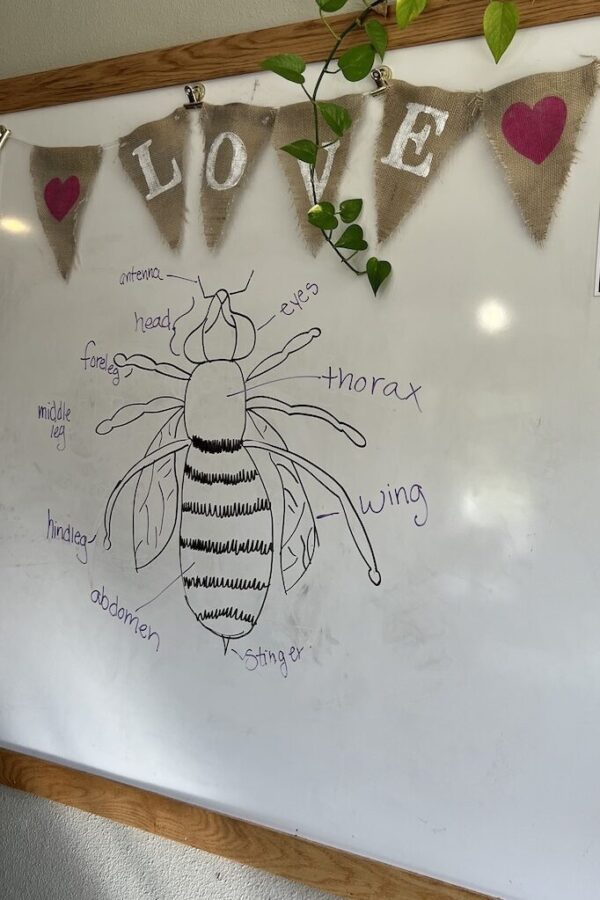 LOVE
antenna
eyes
head
foreleg
thorax
middle
leg
wing
hindleg
abdomen
stinger